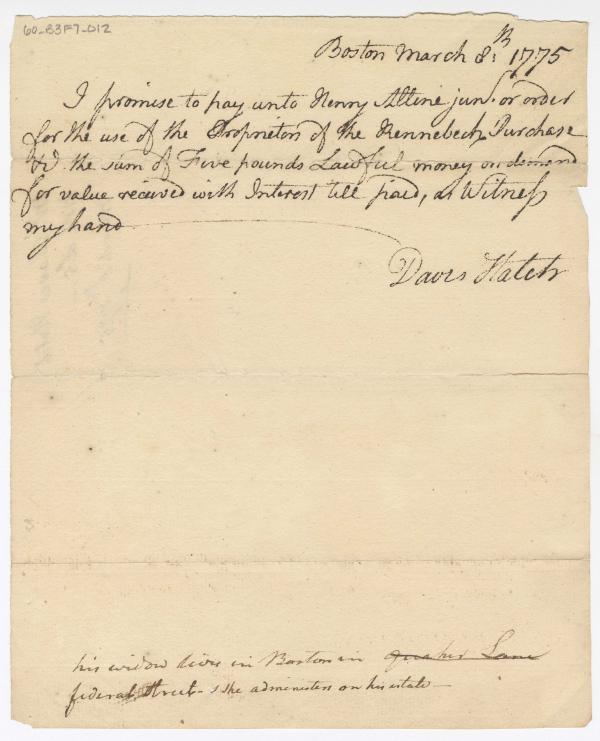 60-B3F7-012
Boston March 8: th 1775
I promise to pay unto Henry Alline junr. or order
for the use of the Proprietors of the Kennebeck Purchase
&c. the sum of Five pounds Lawful money on demand
for value received with Interest till paid, as Witness
my hand
Davis Hatch
his widow lives in Boston in Quaker Lane
federal Street - she administers on his estate -